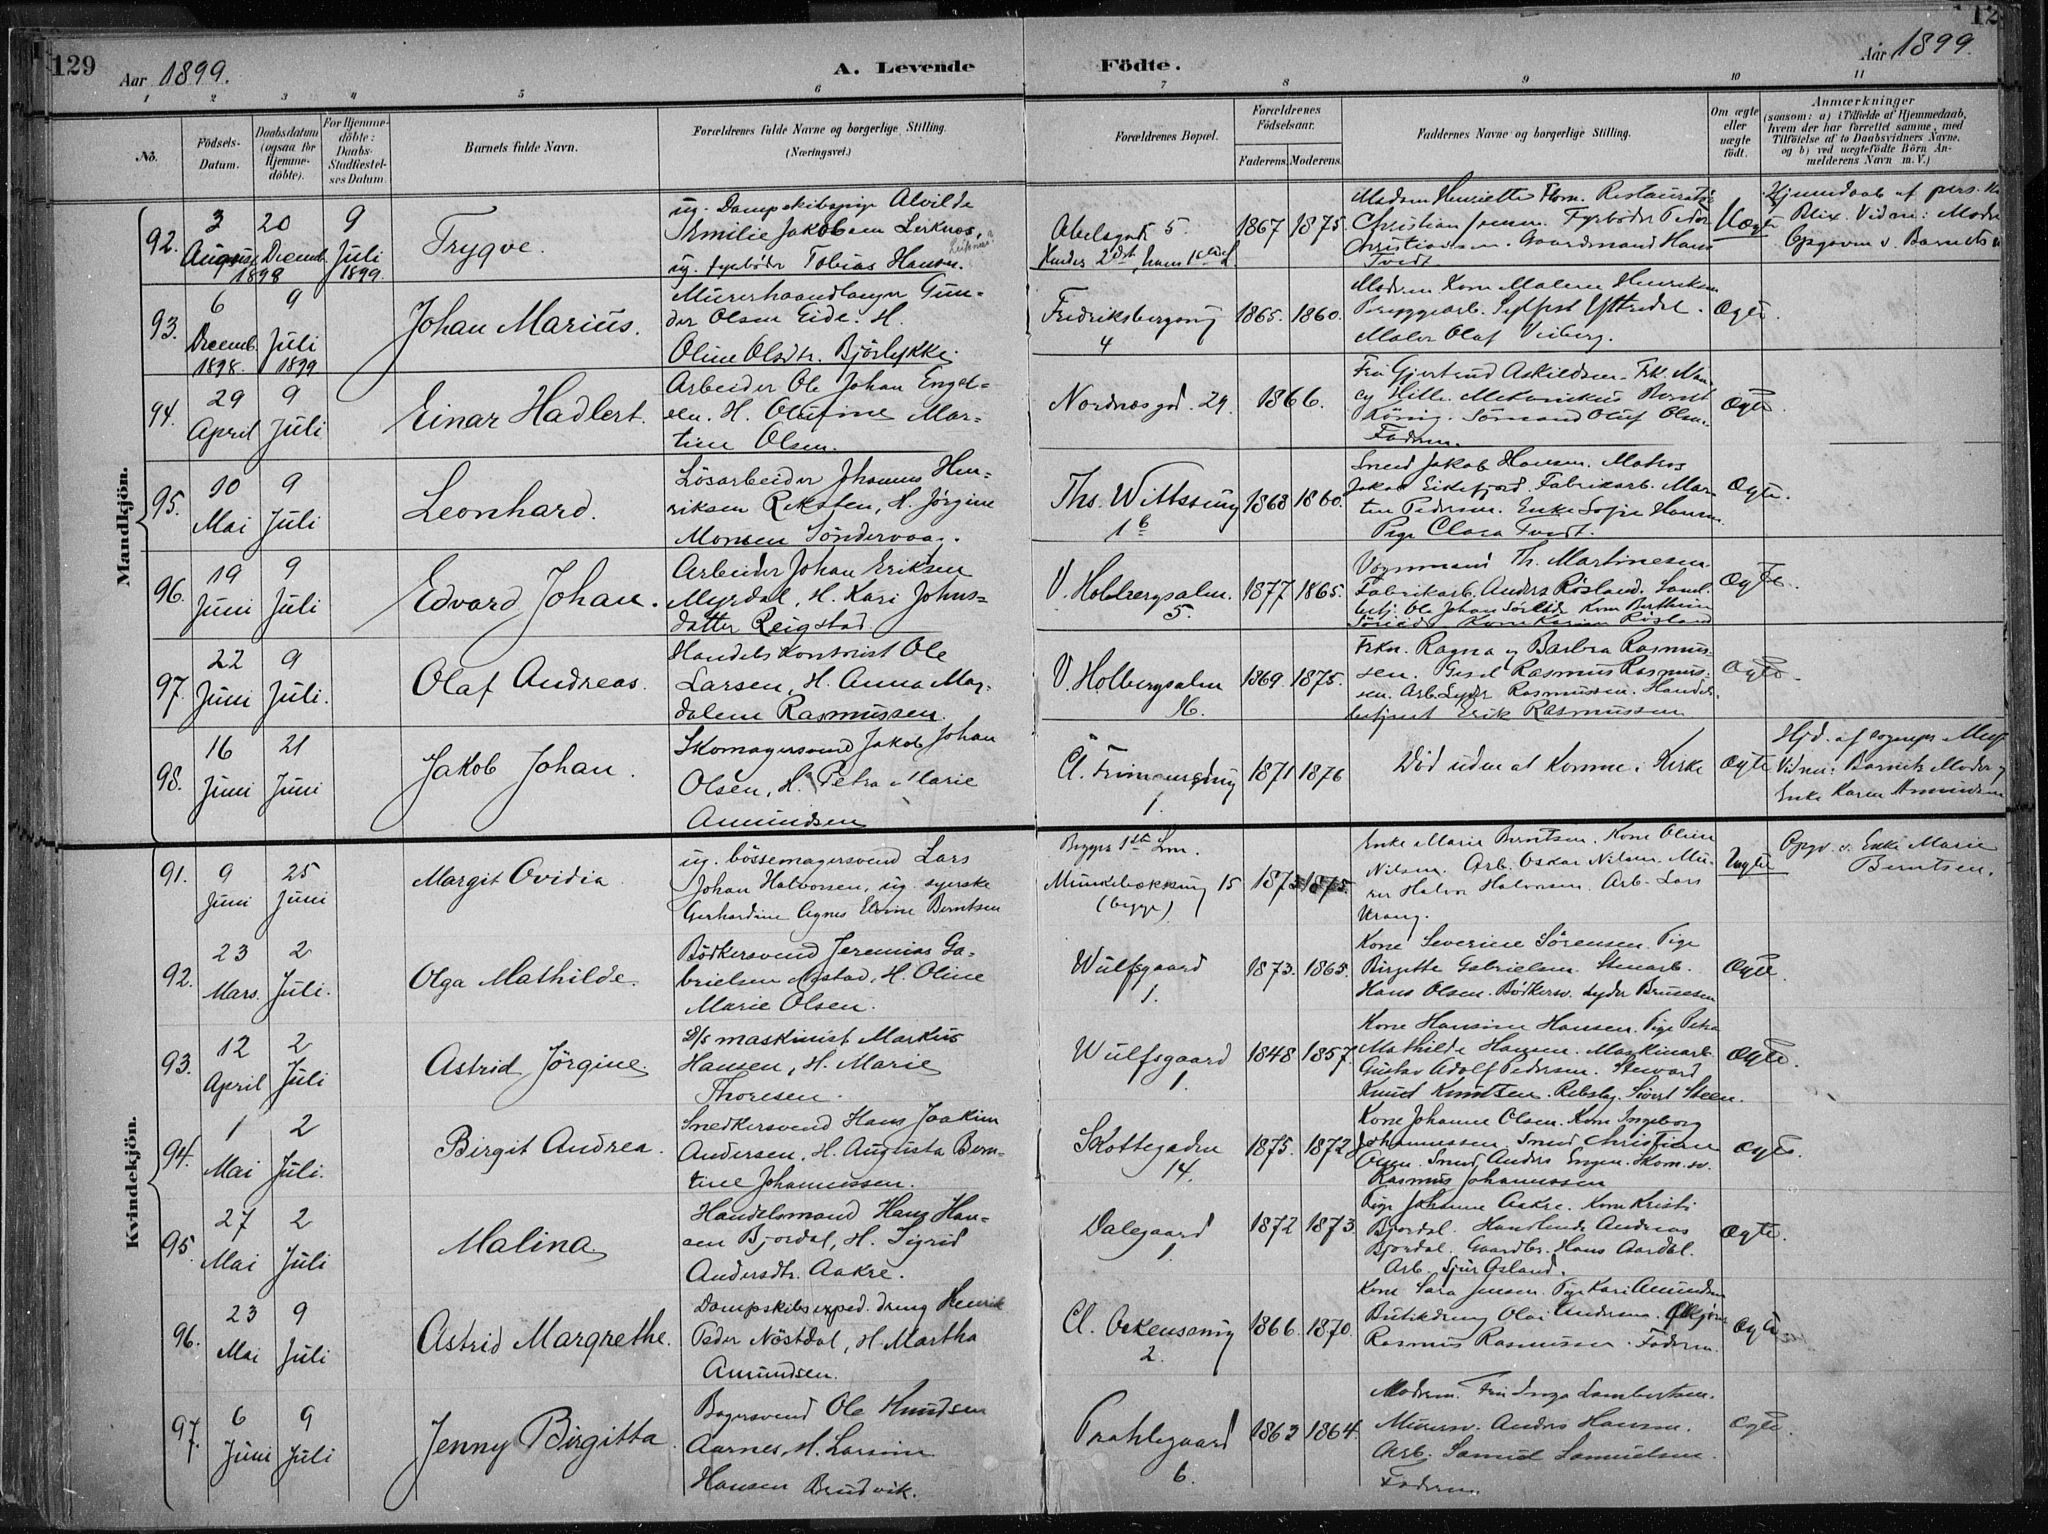 129
Aar 1899.
A. Levende
Födte.
Aar 1899.
12
1 2 3 4 5 6 7 8 9 10 11
No.
Födsels-
Datum.
Daabsdatum
(ogsaa for
Hjemme-
döbte).
For Hjemme-
döbte:
Daabs-
Stadfæstel-
ses Datum.
Barnets fulde Navn.
Forældrenes fulde Navne og borgerlige Stilling.
(Næringsvei.)
Forældrenes Bopæl.
Forældrenes
Födselsaar.
Faderens. Moderens.
Faddernes Navne og borgerlige Stilling.
Om ægte
eller
uægte
födt.
Anmærkninger
(saasom: a) i Tilfælde af Hjemmedaab,
hvem der har forrettet samme, med
Tilföielse af to Daabsvidners Navne.
og b) ved uægtefödte Börn An-
melderens Navn m. V.)
Mandkjön.
92. 3 August 1898 20 Decemb. 9 Juli 1899.
Trygve.
ug. Dampskibspige Alvilde
Emilie Jakobsen Leiknes,
ug. fyrbøder Tobias Hansen.
Abelsgade 5.
1867 1875.
Christian Jensen. Fyrbøder Peder
Christiansen. Gaardmand Hans
Tvedt
Uægte
Hjemdaab af
Blix. Vidne: Mode
Opgiven v. Barnets
93. 6 Decemb. 1898. 9 Juli 1899
Johan Marius.
Murerhaandlanger Gun-
der Olsen Eide. H.
Oline Olsdtr. Björlykke.
Fredriksbergsmg
4
1865. 1860.
Moderen. Kone Malene Henriksen
Maler Olaf Veiberg.
Ægte.
94. 29 April 9 Juli
Einar Hadlert.
Arbeider Ole Johan Engel-
sen. H. Olufine Mar-
tine Olsen.
Nordnæsgd. 29.
1866.
Fru Gjertrud Askildsen. Frk. Man
König. Sömand Oluf Olsen.
Faderen.
Ægte.
95. 10 Mai 9 Juli
Leonhard.
Lösarbeider Johannes Hen-
riksen Reksten, H. Jørgine
Monsen Söndervaag.
Ths. Wittssmg
1b
1868 1860.
Smed Jakob Hansen. Matros
Jakob Eikefjord. Fabrikarb. Mar-
tin Pedersen. Enke Sofie Hansen.
Pige Clara Tvedt.
Ægte.
96. 19 Juni 9 Juli
Edvard Johan.
Arbeider Johan Eriksen
Myrdal, H. Kari Johns-
datter Reigstad.
V. Holbergsalm.
5.
1877 1865.
Vognmand Th. Martinesen
Fabrikarb. Anders Røsland.
Ole Johan Sörlie Kone Berthine
Kone Karine Røsland
Ægte.
97. 22 Juni 9 Juli.
Olaf Andreas.
Handelskontorist Ole
Larsen, H. Anna Mag-
dalene Rasmussen.
V. Holbergsalm
16.
1869. 1875.
Frkn. Ragna og Barbra Rasmus-
sen. Gesel Rasmus Rasmus-
sen. Arb. Lyder Rasmussen. Handels-
betjent Erik Rasmussen
Ægte.
98. 16 Juni 21 Juni
Jakob Johan.
Skomagersvend Jakob Johan
Olsen, H. Petra Marie
Amundsen
Cl. Frimannsmg
1.
1871 1876
Död uden at komme i Kirke
Ægte
Hjd. af sognepr.
Vidner: Barnets Moder og
Enke Karen Amundsen
Kvindekjön.
91. 9 Juni 25 Juni
Margit Ovidia.
ug. bössemagersvend Lars
Johan Halvorsen, ug. syerske
Gerhardine Agnes Elvine Berntsen
Begges 1ste Lm.
Munkebæksmg 15
(begge)
1875 1875.
Enke Marie Berntsen. Kone Oline
Nilsen. Arb. Oskar Nilsen. Mu-
rer Halvor Halvorsen. Arb. Lars
Uægte
Opgv. v. Enke Marie
Berntsen.
92. 23 Mars. 2 Juli.
Olga Mathilde.
Bödkersvend Jeremias Ga-
brielsen Nystad, H. Oline
Marie Olsen.
Wulfsgaard
1.
1873. 1865.
Kone Severine Sörensen. Pige
Birgitte Gabrielsen. Stenarb.
Hans Olsen. Bödkersv. Lyder Brunesen
Ægte.
93. 12 April 2 Juli
Astrid Jörgine.
D/s maskinist Markus
Hansen, H. Marie
Thoresen.
Wulfsgaard
1.
1848 1857.
Kone Hansine Hansen. Pige Petra
Mathilde Hansen. Maskinarb.
Gustav Adolf Pedersen. Steward
Knud Knutsen. Rebslag. Sivert Steen.
Ægte.
94. 1 Mai 2 Juli.
Birgit Andrea.
Snedkersvend Hans Joakim
Andersen, H. Augusta Bern-
tine Johannessen.
Skottegaden
14.
1875. 1872
Kone Johanne Olsen. Kone Ingeborg
Johannessen. Smed Christian
Olsen. Smed Anders Engen. Skom. sv.
Rasmus Johannessen
Ægte.
95. 27 Mai 2 Juli
Malina.
Handelsmand Hans Han-
sen Bjordal, H. Sigrid
Andersdtr. Aakre.
Dalegaard
1.
1872 1873.
Pige Johanne Aakre. Kone Kristi
Bjordal. Handlende Andreas
Bjordal. Gaardbr. Hans Aardal.
Arb. Sjur Osland.
Ægte.
96. 23 Mai 9 Juli
Astrid Margrethe.
Dampskibsexped. dreng Henrik
Peder Nöstdal, H. Martha
Amundsen.
Cl. Ockensmg
2.
1866. 1870.
Kone Sara Jensen. Pige Kari Amundsen
Butikdreng Olai Andersen.
Rasmus Rasmussen. Faderen.
Ægte
97. 6 Juni 9 Juli
Jenny Birgitta.
Bagersvend Ole Knudsen
Aarnes, H. Larsine
Hansen Brudvik.
Prahlsgaard
6.
1863 1864.
Moderen. Fru Inga Lambertsen.
Murersv. Anders Hansen.
Arb. Samuel Samuelsen
Faderen.
Ægte.